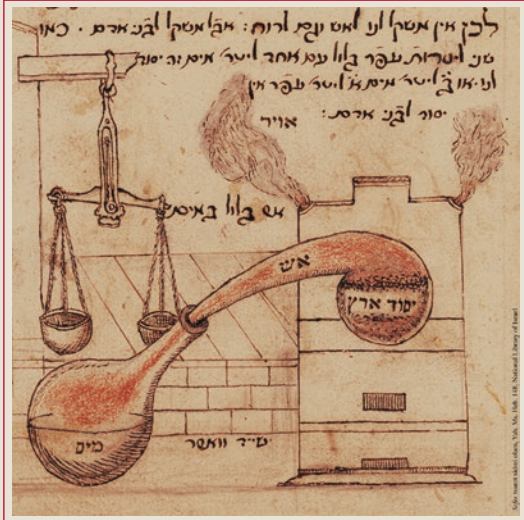 לכן אין משקל לנו לאש וגם לרוח: אבל משקל לבני אדם. כמו
שני ליטרות עפר בלול עם אחד ליטר' מים זה יסוד
לנו או ב' ליטר' מים א' ליטר' עפר אין
יסוד לבני אדם:
אויר
אש בלול במים
אש
יסוד ארץ
מים
Sefer maaseh, Yah. Ms. Heb. 148, National Library of Israel